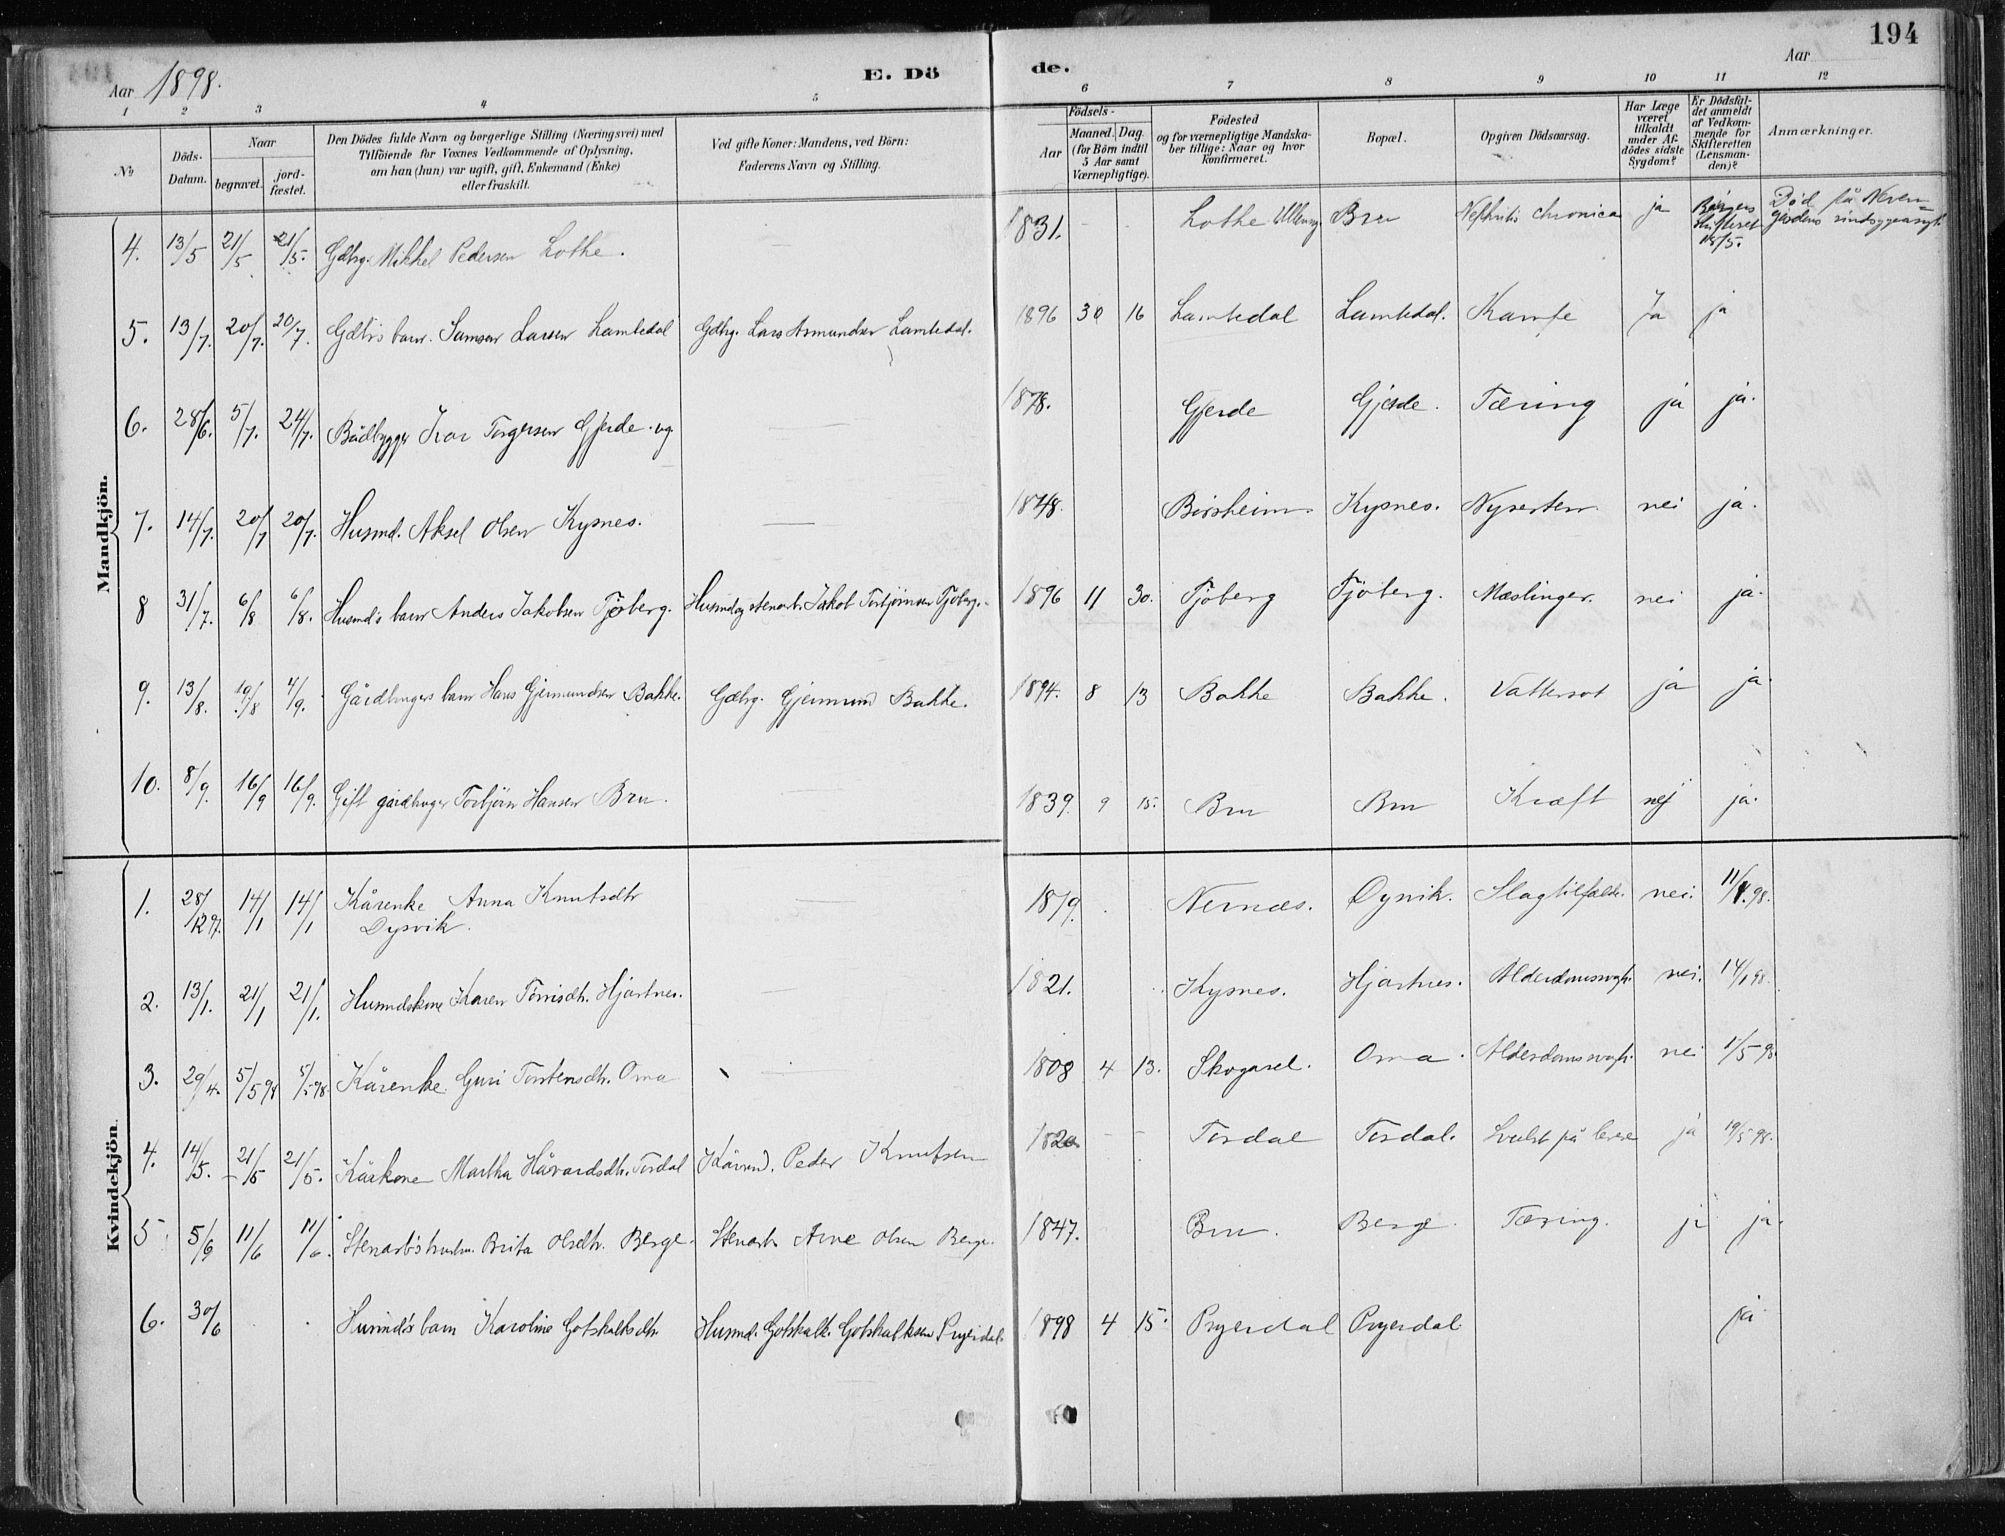 194
Aar 1898.
E. Dö de.
Aar
1 2 3 4 5 6 7 8 9 10 11 12
No
Döds-Datum.
Naar
begravet.
jord-fæstet.
Den Dödes fulde Navn og borgerlige Stilling (Næringsvei) med
Tilföiende for Voxnes Vedkommende af Oplysning,
om han (hun) var ugift, gift, Enkemand (Enke)
eller fraskilt.
Ved gifte Koner: Mandens, ved Börn:
Faderens Navn og Stilling.
Födsels-
Aar
Maaned. Dag.
(for Börn indtil
5 Aar samt
Værnepligtige).
Födested
og for værnepligtige Mandska-
ber tillige: Naar og hvor
konfirmeret.
Bopæl.
Opgiven Dödsaarsag.
Har Læge
været
tilkaldt
under Af-
dödes sidste
Sygdom?
Er Dödsfal-
det anmeldt
af Vedkom-
mende for
Skifteretten
(Lensman-
den)?
Anmærkninger.
Mandkjön.
4. 13/5 21/5 21/5. Gdbrg. Mikkel Pedersen Lothe. 1831. Lothe Bru Nephritis chronica ja Bergens Skifteret Död på Neven-gårdens sindsygeasyl.
5. 13/7. 20/7. 20/7. Gdbrs barn. Samson Larsen Lambedal Gdbrg. Lars Asmundsen Lambedal. 1896 30 16 Lambedal Lambedal. Krampe Ja ja
6. 28/6. 5/7. 24/7. Bådbygger Ivar Torgersen Gjerde. ug. 1878. Gjerde Gjerde. Tæring ja ja.
7. 14/7. 20/7 20/7. Husmd. Aksel Olsen Kysnes. 1848. Børsheim. Kysnes. Nyserten nei ja.
8 31/7. 6/8 6/8. Husmd's barn Anders Jakobsen Tjoberg. Husmd og stenarb. Jakob Torbjørnsen Tjoberg. 1896 11 30. Tjoberg Tjoberg. Mæslinger. nei ja.
9. 13/8. 19/8 4/9. Gårdbrugers barn Hans Gjermundsen Bakke. Gdbrg. Gjermund Bakke. 1894. 8 13 Bakke Bakke. Vattersot ja ja.
10. 8/9. 16/9 16/9. Gift gårdbruger Torbjörn Hansen Bru. 1839. 9 15. Bru Bru Kræft nej ja.
Kvindekjön.
1. 28/12 97. 14/1 14/1 Kårenke Anna Knutsdtr
Dysvik. 1819. Nernæs. Dysvik. Slagtilfælde. nei. 11/1.98.
2. 13/1. 21/1 21/1. Husmdskone Karen Tönnisdtr. Hjartnes. 1821. Kysnes. Hjartnes. Alderdomssvagh. nei. 14/1 98.
3. 29/4. 5/5 98 5/5 98. Kårenke. Guri Torstensdtr. Oma 1808 4 13. Skogasel. Oma. Alderdomssvagh. nei 11/5 98.
4. 14/5. 21/5 21/5. Kårkone Martha Håvardsdtr. Tordal Kårmd. Peder Knutsen 1820. Tordal Tordal. Svulst på leveren ja 19/5 98.
5. 5/6 11/6 11/6. Stenarb's hustru. Brita Olsdtr. Berge. Stenarb. Arne Olsen Berge. 1847. Bru. Berge. Tæring. ja ja.
6. 30/6 Husmd's barn Karoline Gotskalksdtr. Husmd. Gotskalk Gotskalksen Prygerdal. 1898 4 15. Prygerdal Prygerdal. ja